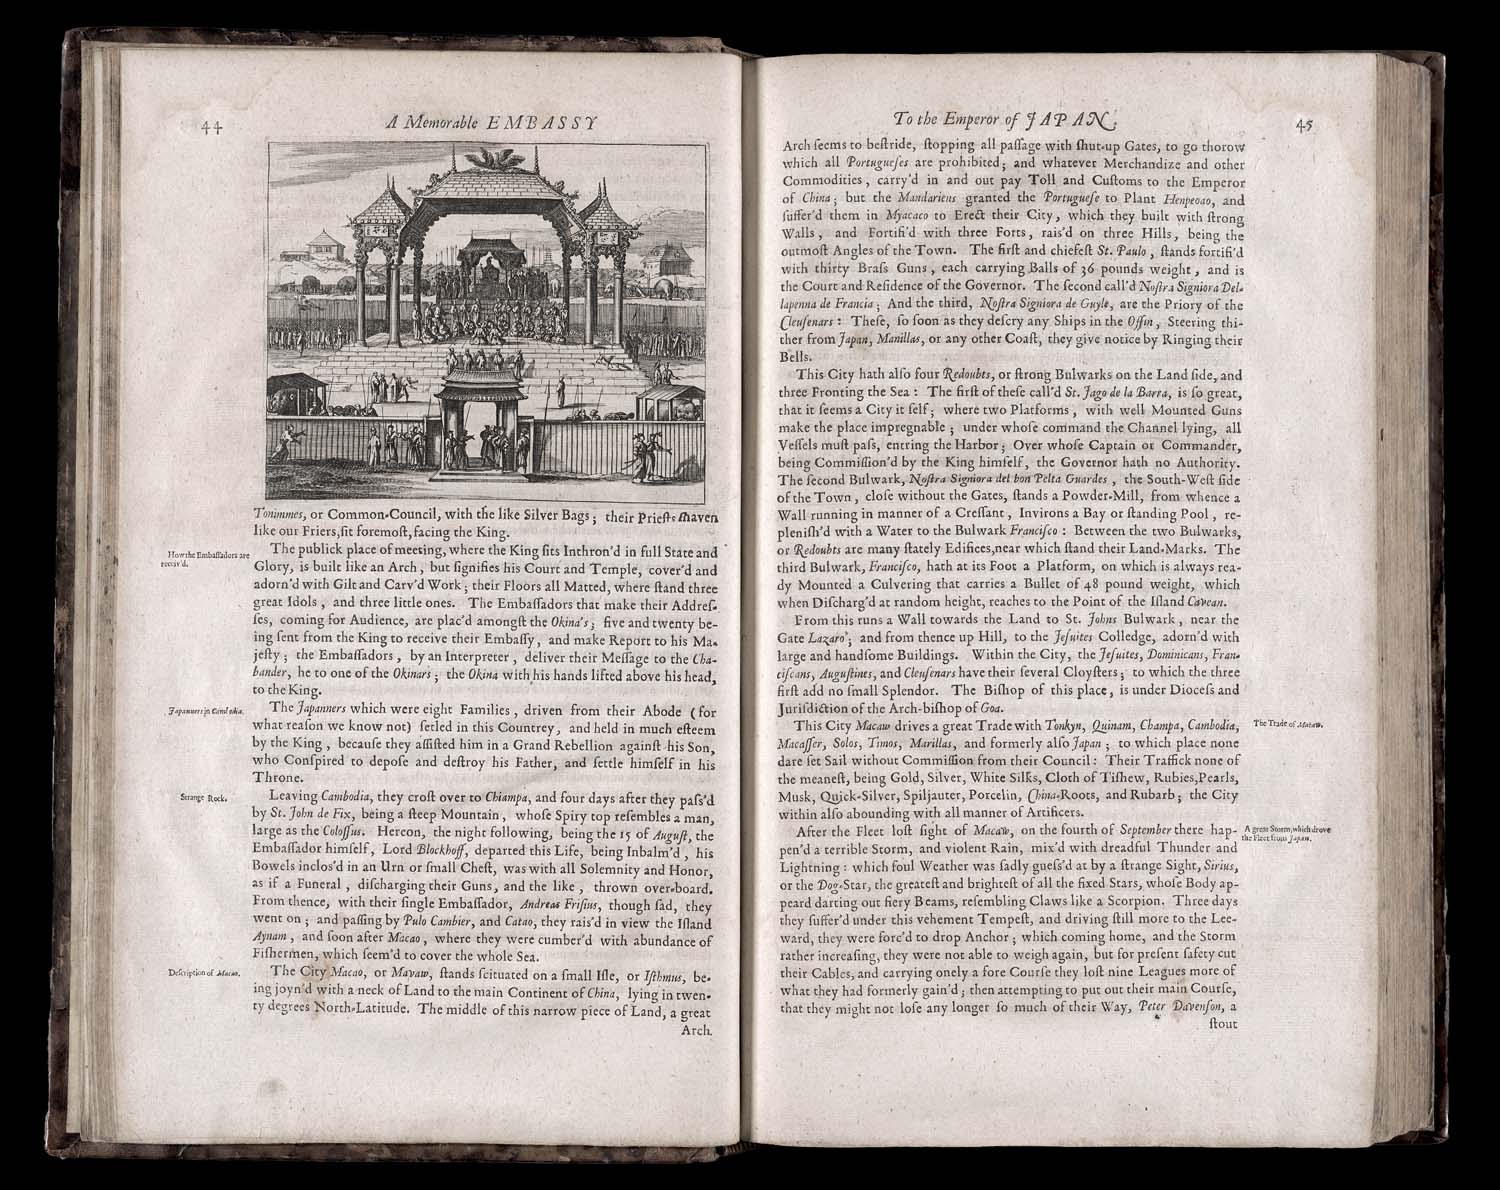 44
A Memorable EMBASSY
Tonimmes, or Common-Council, with the like Silver Bags; their Priests shaven
like our Friers, sit foremost, facing the King.
How the Embassadors are
receiv'd.
The publick place of meeting, where the King sits Inthron'd in full State and
Glory, is built like an Arch, but signifies his Court and Temple, cover'd and
adorn'd with Gilt and Carv'd Work; their Floors all Matted, where stand three
great Idols, and three little ones. The Embassadors that make their Addres-
ses, coming for Audience, are plac'd amongst the Okina's; five and twenty be-
ing sent from the King to receive their Embassy, and make Report to his Ma-
jesty; the Embassadors, by an Interpreter, deliver their Message to the Cha-
bander, he to one of the Okinars; the Okina with his hands lifted above his head,
to the King.
Japanners in Cambodia.
The Japanners which were eight Families, driven from their Abode (for
what reason we know not) setled in this Countrey, and held in much esteem
by the King, because they assisted him in a Grand Rebellion against his Son,
who Conspired to depose and destroy his Father, and settle himself in his
Throne.
Strange Rock.
Leaving Cambodia, they crost over to Chiampa, and four days after they pass'd
by St. John de Fix, being a steep Mountain, whose Spiry top resembles a man,
large as the Colossus. Hereon, the night following, being the 15 of August, the
Embassador himself, Lord Blockhoff, departed this Life, being Inbalm'd, his
Bowels inclos'd in an Urn or small Chest, was with all Solemnity and Honor,
as if a Funeral, discharging their Guns, and the like, thrown over-board.
From thence, with their single Embassador, Andreas Frisius, though sad, they
went on; and passing by Pulo Cambier, and Catao, they rais'd in view the Island
Aynam, and soon after Macao, where they were cumber'd with abundance of
Fishermen, which seem'd to cover the whole Sea.
Description of Macao.
The City Macao, or Mayaw, stands scituated on a small Isle, or Isthmus, be-
ing joyn'd with a neck of Land to the main Continent of China, lying in twen-
ty degrees North-Latitude. The middle of this narrow piece of Land, a great
Arch.
To the Emperor of JAPAN.
45
Arch seems to bestride, stopping all passage with shut-up Gates, to go thorow
which all Portugueses are prohibited; and whatever Merchandize and other
Commodities, carry'd in and out pay Toll and Customs to the Emperor
of China; but the Mandariens granted the Portuguese to Plant Henpeoao, and
suffer'd them in Myacaco to Erect their City, which they built with strong
Walls, and Fortifi'd with three Forts, rais'd on three Hills, being the
outmost Angles of the Town. The first and chiefest St. Paulo, stands fortifi'd
with thirty Brass Guns, each carrying Balls of 36 pounds weight, and is
the Court and Residence of the Governor. The second call'd Nostra Signiora Del-
lapenna de Francia; And the third, Nostra Signiora de Guyle, are the Priory of the
Cleusenars: These, so soon as they descry any Ships in the Offin, Steering thi-
ther from Japan, Manillas, or any other Coast, they give notice by Ringing their
Bells.
This City hath also four Redoubts, or strong Bulwarks on the Land side, and
three Fronting the Sea: The first of these call'd St. Jago de la Barra, is so great,
that it seems a City it self; where two Platforms, with well Mounted Guns
make the place impregnable; under whose command the Channel lying, all
Vessels must pass, entring the Harbor; Over whose Captain or Commander,
being Commission'd by the King himself, the Governor hath no Authority.
The second Bulwark, Nostra Signiora del bon Pelta Guardes, the South-West side
of the Town, close without the Gates, stands a Powder-Mill, from whence a
Wall running in manner of a Cressant, Invirons a Bay or standing Pool, re-
plenish'd with a Water to the Bulwark Francisco: Between the two Bulwarks,
or Redoubts are many stately Edifices, near which stand their Land-Marks. The
third Bulwark, Francisco, hath at its Foot a Platform, on which is always rea-
dy Mounted a Culvering that carries a Bullet of 48 pound weight, which
when Discharg'd at random height, reaches to the Point of the Island Cavean.
From this runs a Wall towards the Land to St. Johns Bulwark, near the
Gate Lazaro; and from thence up Hill, to the Jesuites Colledge, adorn'd with
large and handsome Buildings. Within the City, the Jesuites, Dominicans, Fran-
ciscans, Augustines, and Cleusenars have their several Cloysters; to which the three
first add no small Splendor. The Bishop of this place, is under Diocess and
Jurisdiction of the Arch-bishop of Goa.
This City Macaw drives a great Trade with Tonkyn, Quinam, Champa, Cambodia,
The Trade of Macaw.
Macasser, Solos, Timos, Marillas, and formerly also Japan; to which place none
dare set Sail without Commission from their Council: Their Traffick none of
the meanest, being Gold, Silver, White Silks, Cloth of Tishew, Rubies, Pearls,
Musk, Quick-Silver, Spiljauter, Porcelin, China-Roots, and Rubarb; the City
within also abounding with all manner of Artificers.
After the Fleet lost sight of Macaw, on the fourth of September there hap-
A great Storm, which drove
the Fleet from Japan.
pen'd a terrible Storm, and violent Rain, mix'd with dreadful Thunder and
Lightning: which foul Weather was sadly guess'd at by a strange Sight, Sirius,
or the Dog-Star, the greatest and brightest of all the fixed Stars, whose Body ap-
peard darting out fiery Beams, resembling Claws like a Scorpion. Three days
they suffer'd under this vehement Tempest, and driving still more to the Lee-
ward, they were forc'd to drop Anchor; which coming home, and the Storm
rather increasing, they were not able to weigh again, but for present safety cut
their Cables, and carrying onely a fore Course they lost nine Leagues more of
what they had formerly gain'd; then attempting to put out their main Course,
that they might not lose any longer so much of their Way, Peter Davenson, a
stout